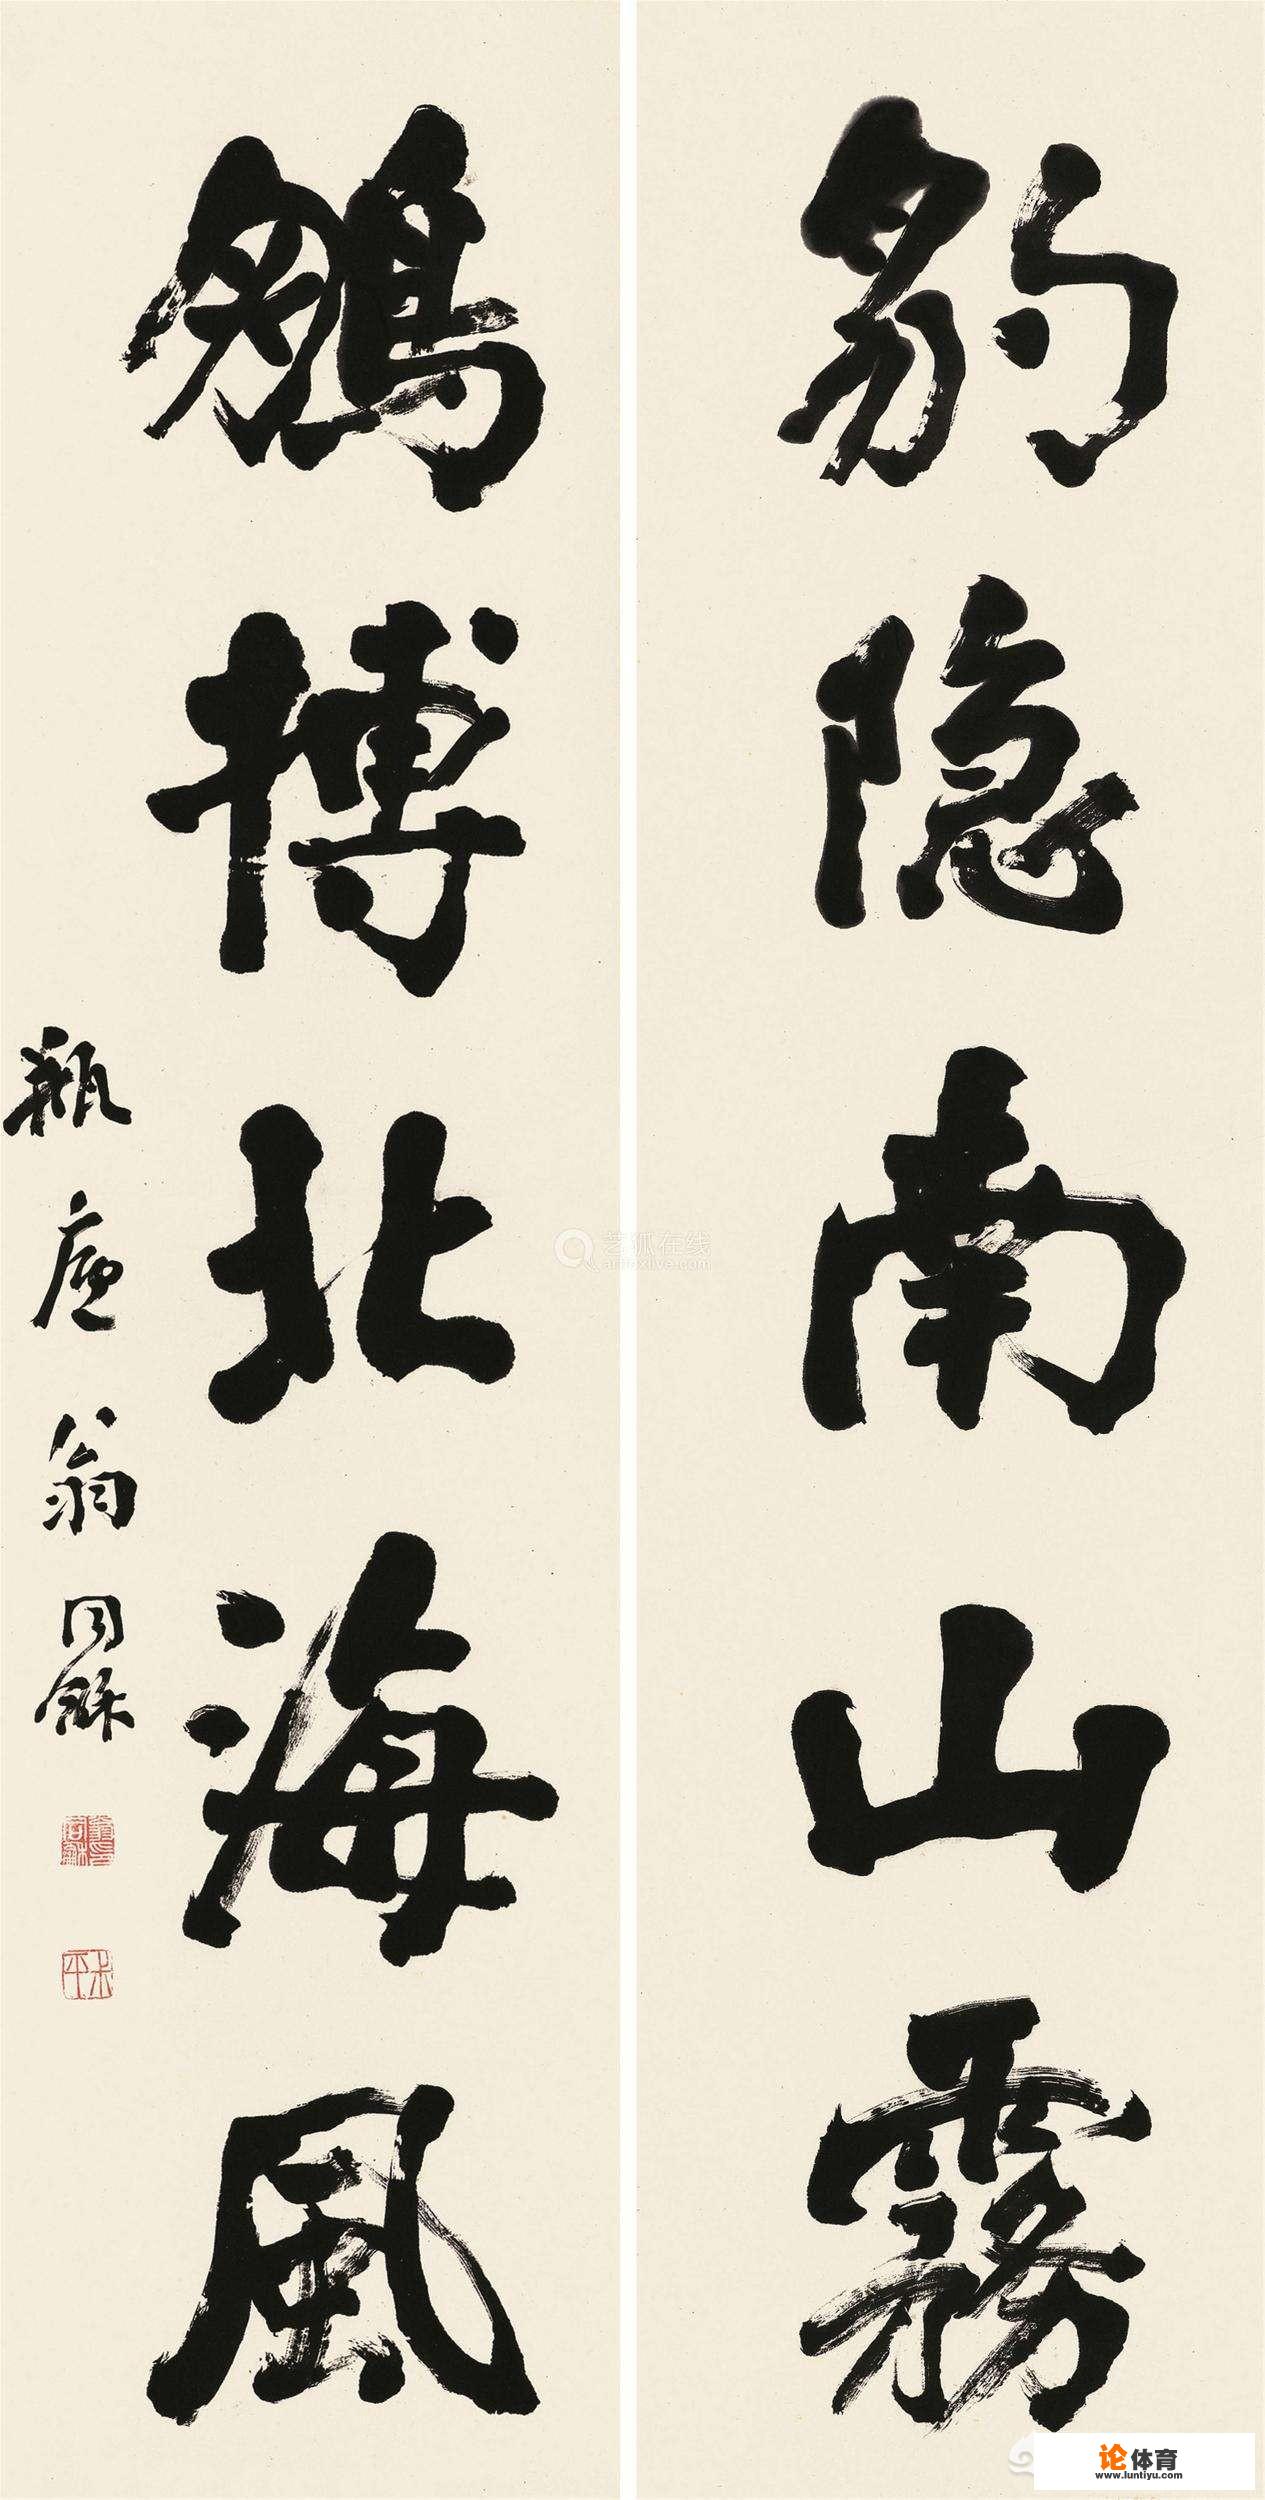 豹隐南山霧
鵬搏北海風
瓶廬翁同龢
翁同龢印
叔平
艺狐在线
artfoxlive.com
论体育
www.luntiyu.com